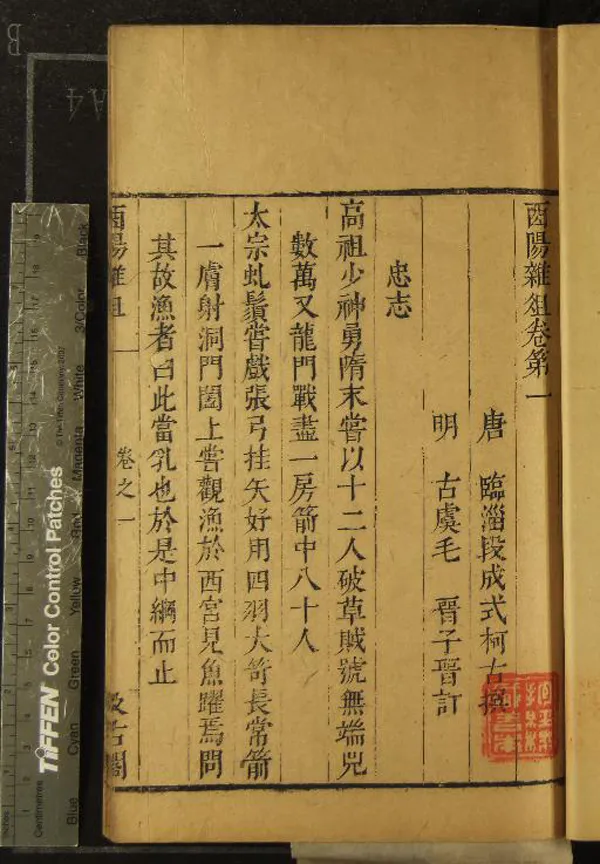 酉陽雜俎卷第一
唐 臨淄段成式柯古撰
明 古虞毛 晉子晉訂
忠志
高祖少神勇隋末嘗以十二人破草賊號無端兒
數萬又龍門戰盡一房箭中八十人
太宗虬鬚嘗戲張弓挂矢好用四羽大笴長常箭
一膚射洞門闔上嘗觀漁於西宮見魚躍焉問
其故漁者曰此當乳也於是中網而止
酉陽雜俎
卷之一
汲古閣
B
A4
Inches
Centimetres
TIFFEN Color Control Patches
© The Tiffen Company, 2007
Blue
Cyan
Green
Yellow
Red
Magenta
White
3/Color
Black